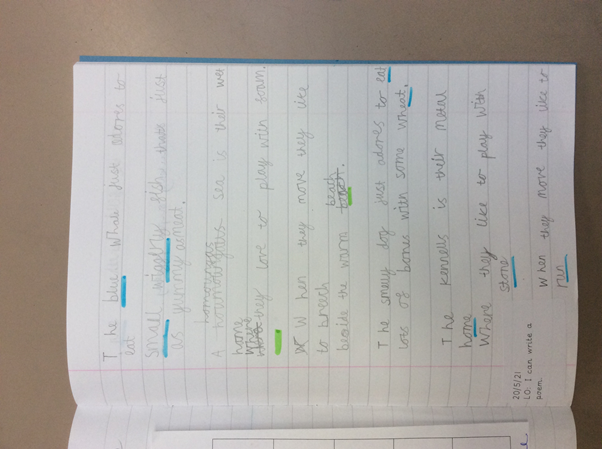 The blue whale just adores to
eat
small fish that just
as yummy as meat.
A sea is their wet
home
Where they love to play with foam.
When they move they like
to breech
beside the warm beach.
The smelly dog just adores to eat
lots of bones with some wheat.
The kennells is their metal
home
Where they like to play with
stone
When they move they like to
run
20/5/21
LO: I can write a
poem.